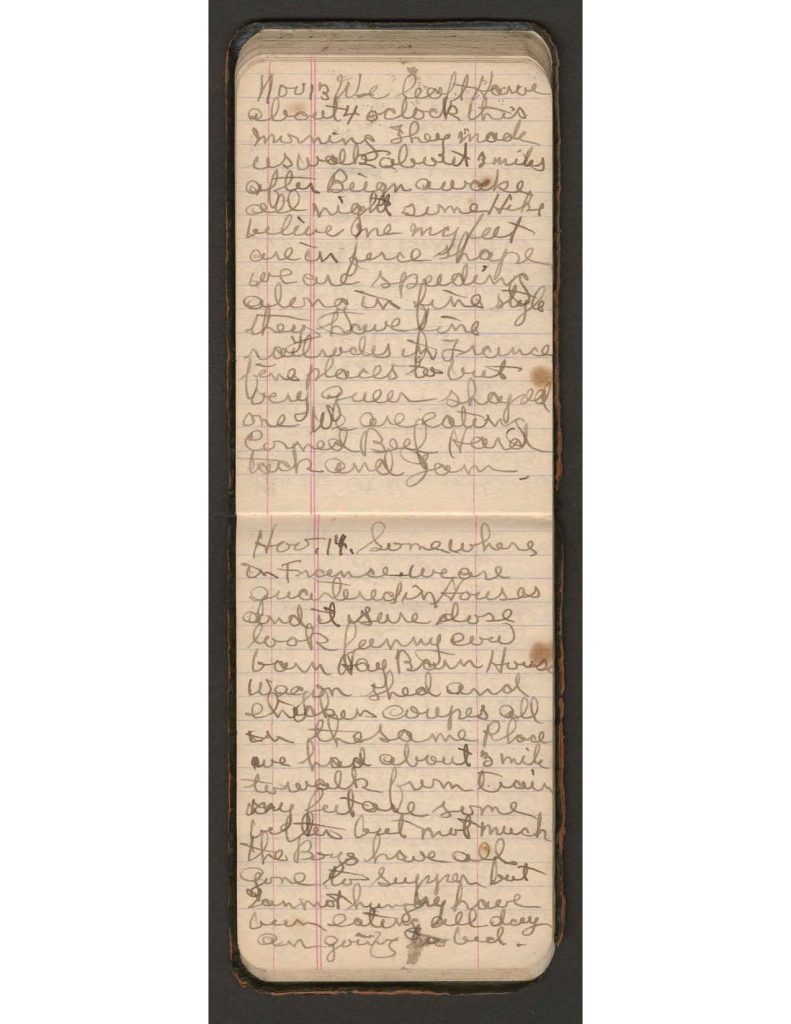 Nov 13 We leaft Havre
about 4 oclock this
morning They made
us walk about 3 miles
after Beign awake
all night some Hike
belive me my feet
are in ferce shape
we are speeding
along in fine style
they have fine
railrodes in France
fine places to but
very queer shaped
one We are eating
Corned Beef Hard
tack and Jam.
Nov. 14. Somewhere
in France. we are
quartered in Houses
and it sure dose
look funny cow
barn Hay Barn House
Wagon shed and
chicken coupes all
in the same Place
we had about 3 mile
to walk furm train
my feet are some
better but not much
the Boys have all
gone to supper but
I am not hungry have
bun eating all day
am going to bed.